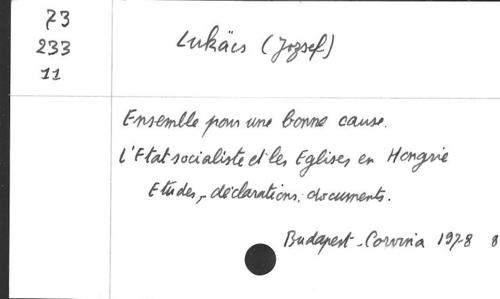 73
233
11
Lukács (Jozsef)
Ensemble pour une bonne cause.
L'Etat socialiste et les Eglises en Hongrie
Etudes, déclarations, documents.
Budapest - Corvina 1978 8